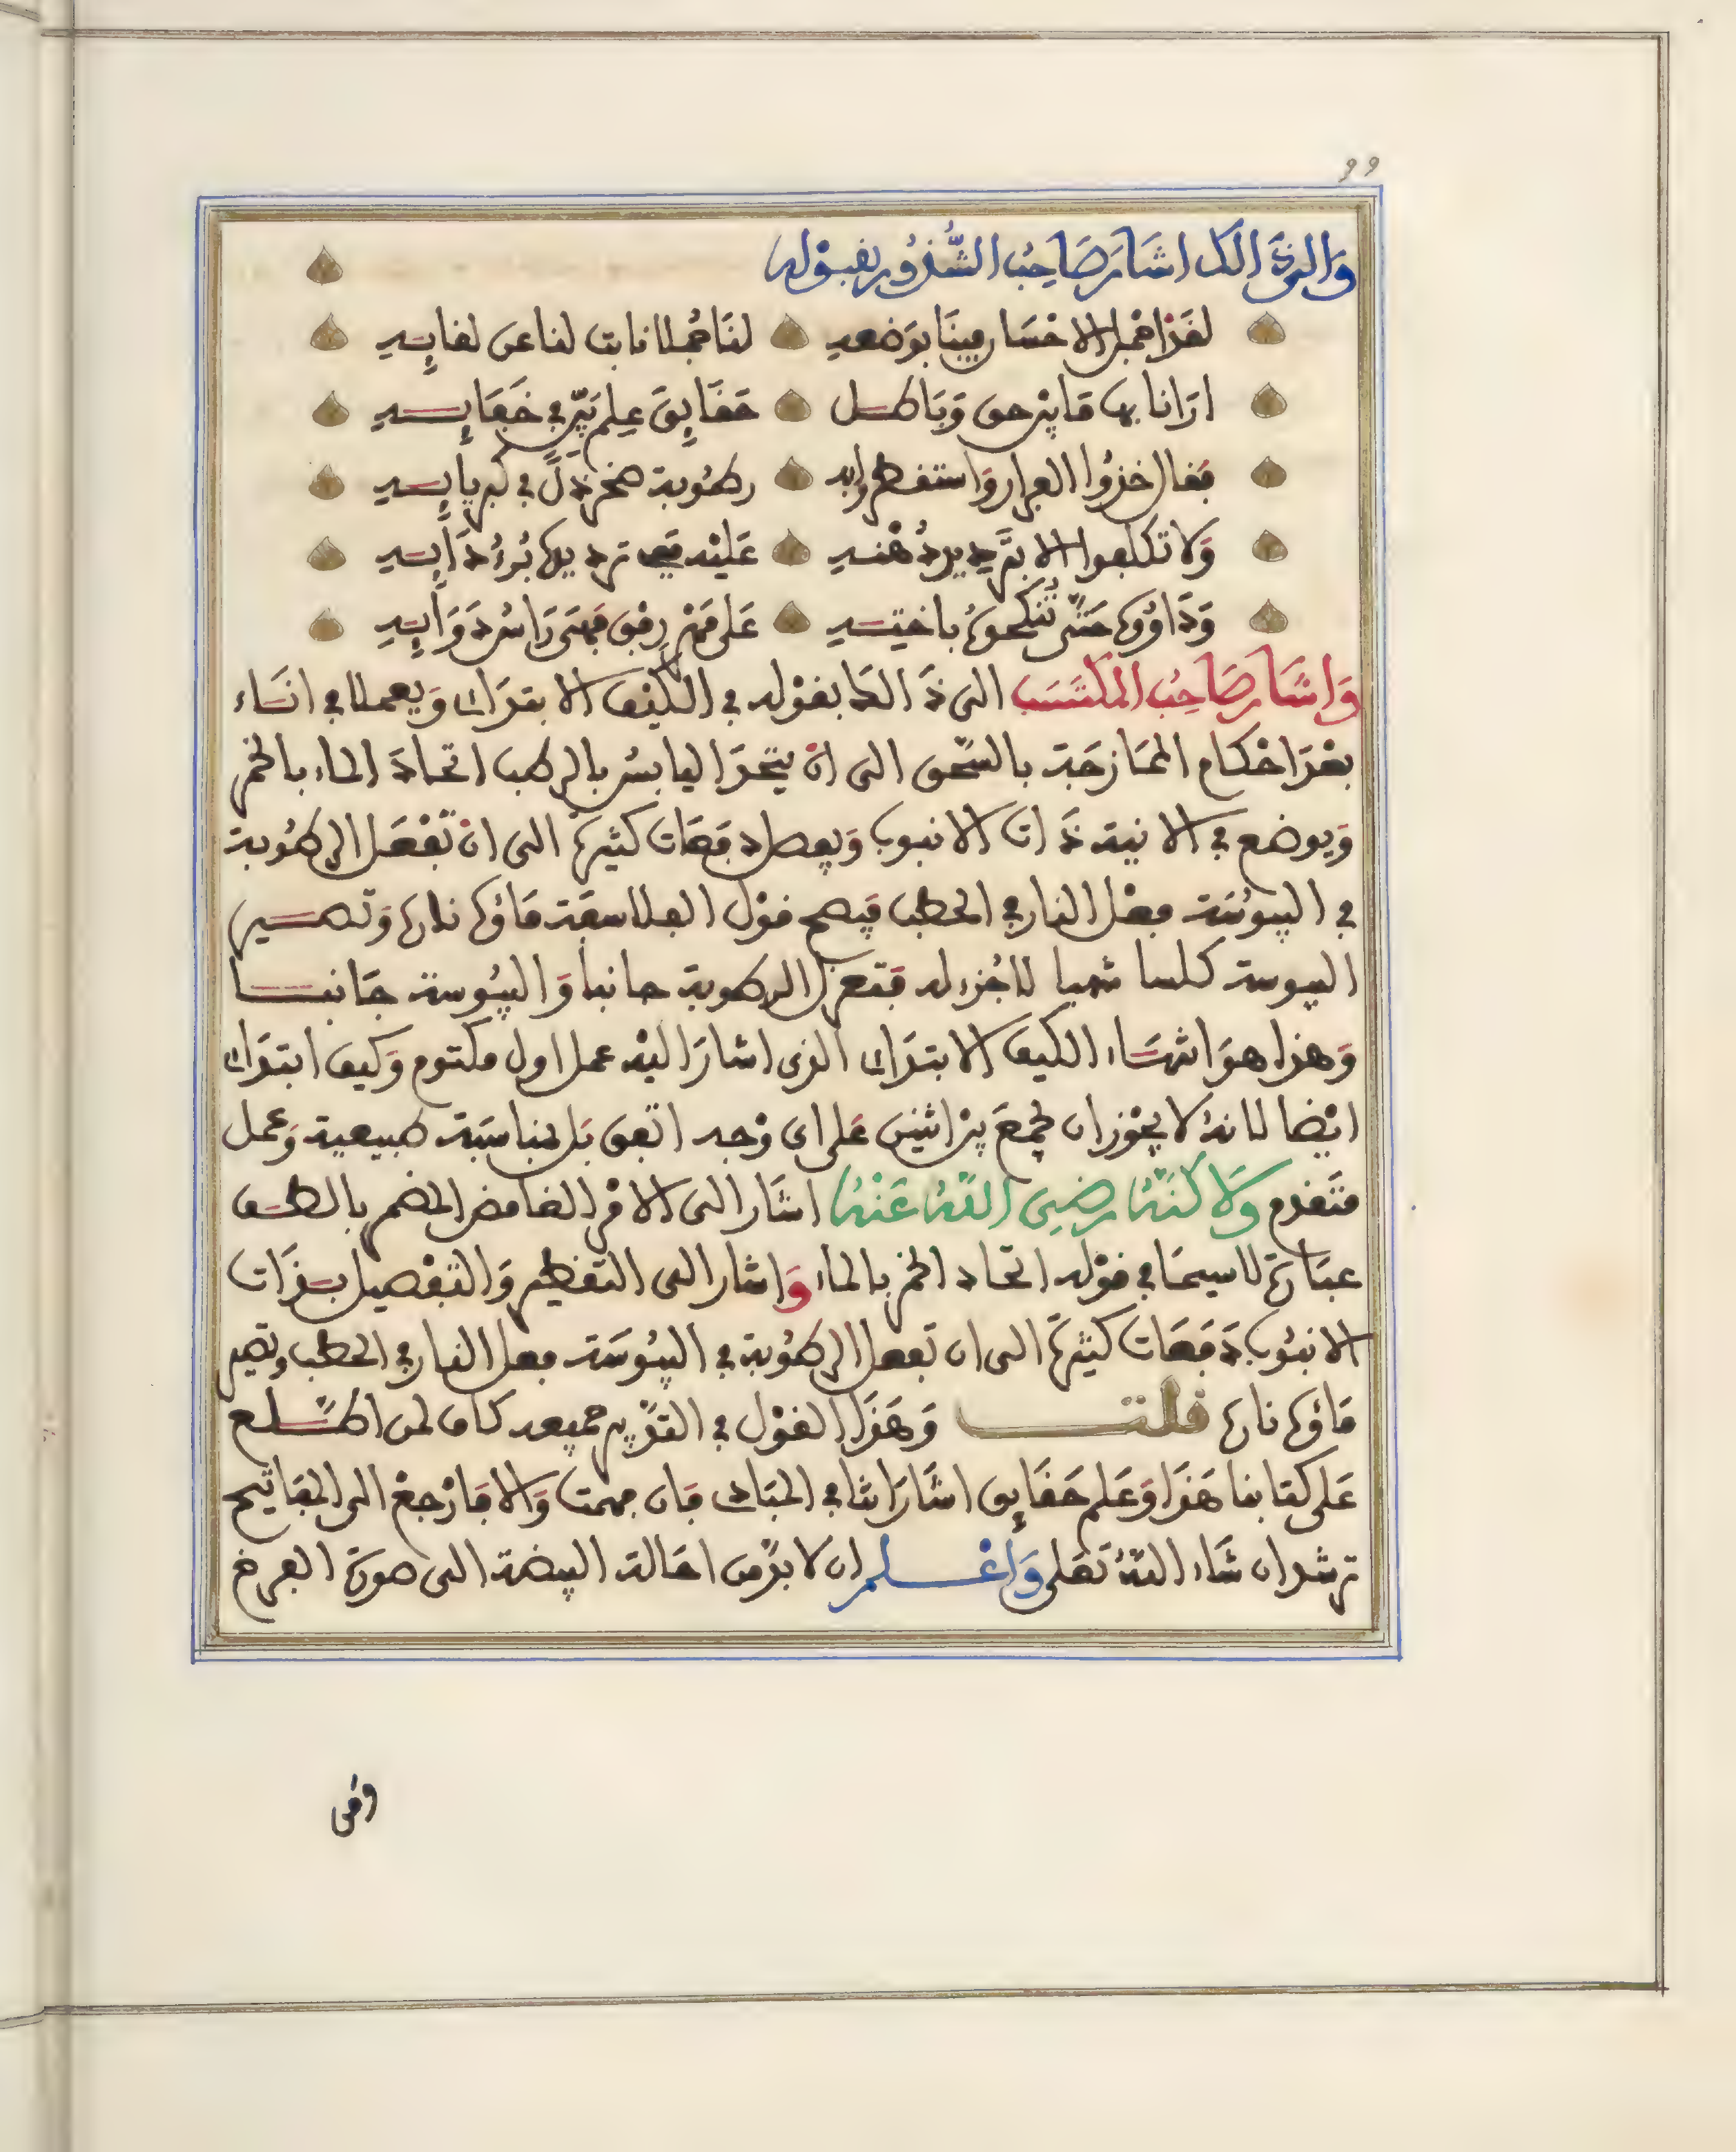 99
وَالى ذَالك اشَارَ صَاحِبُ الشُّذُورِ بقوْله
لقَد اجْمل الاحْسَان فينَا بوَضعه لنَا مُجملا نابت لنا عن لقايِه
ارَانا بها مَا بين حق وَبَاطل حَقَايِقَ عِلم نَيّر في خَفَايِه
فقال خذوا الفرار وَاستقطروا به رطوبة صخر ذلّ في كبريايِه
وَلا تطلبوا الا بتَبْريد دُهنه عَلَيْه ففى تبريدها بُرْءُ دَايِه
وَدَاوُوهَا حَتّى تُنْكحوهُ باخته عَلى مَهْر رفق فهىَ رَاسُ دَوَايِه
وَاشَارَ صَاحِبُ المكتَسَب الى ذَالك بقوْله في الكيْف الابتدَاى وَيعملا في انَاء
بعْدَ احْكام الممَازجَة بالسّحق الى انْ يتحدَ اليابسُ بالرطب اتحادَ الماء بالخمر
وَيوضع في الانية ذَات الانبوب وَيفصل دفعَات كثيرة الى ان تَفْعَل الرطُوبة
في اليبوُسَة فعْل النار في الحطب فيصح قوْل الفلاسفة مَاؤها نارها وَتصير
اليبوسة كلسا شهبا لا جُزء له فتعزل الرطوبة جانبا وَاليبُوسة جَانبا
وَهذا هوَ انتهَاء الكيف الابتدَاى الذى اشارَ اليْه عمل اول مكتوم وَكيف ابتدَاى
ايْضا لانهُ لا يجُوز ان يجْمعَ بيْن اثنيْن عَلى اى وَجه اتفق بَل لمناسَبَة طبيعية وَعمل
متَقدم وَلاكنّهُ رَضِىَ اللهُ عَنْهُ اشَارَ الى الامْر الغامض المضمر بالطف
عبَارَة لا سيمَا في قوْله اتحاد الخمر بالماء وَاشار الى التقطير وَالتفْصيل بذَات
الانبُوب دَفعَات كثيرَة الى ان تفعل الرطُوبة في اليبُوسَة فعل النار في الحطب وتصير
مَاؤها نارها قلت وَهَذَا القوْل في التدْبير جميعه كاف لمن اطّلع
عَلى كتابنا هَذَا وَعَلم حَقَايق اشَارَاتنا في المبَادى فان فهمت وَالا فَارْجعْ الى المفَاتيح
ترشد ان شَاء اللهُ تَعَلى وَاعْلم ان لا بدّ من احَالة البيضة الى صورَة الفرخ
وَمن